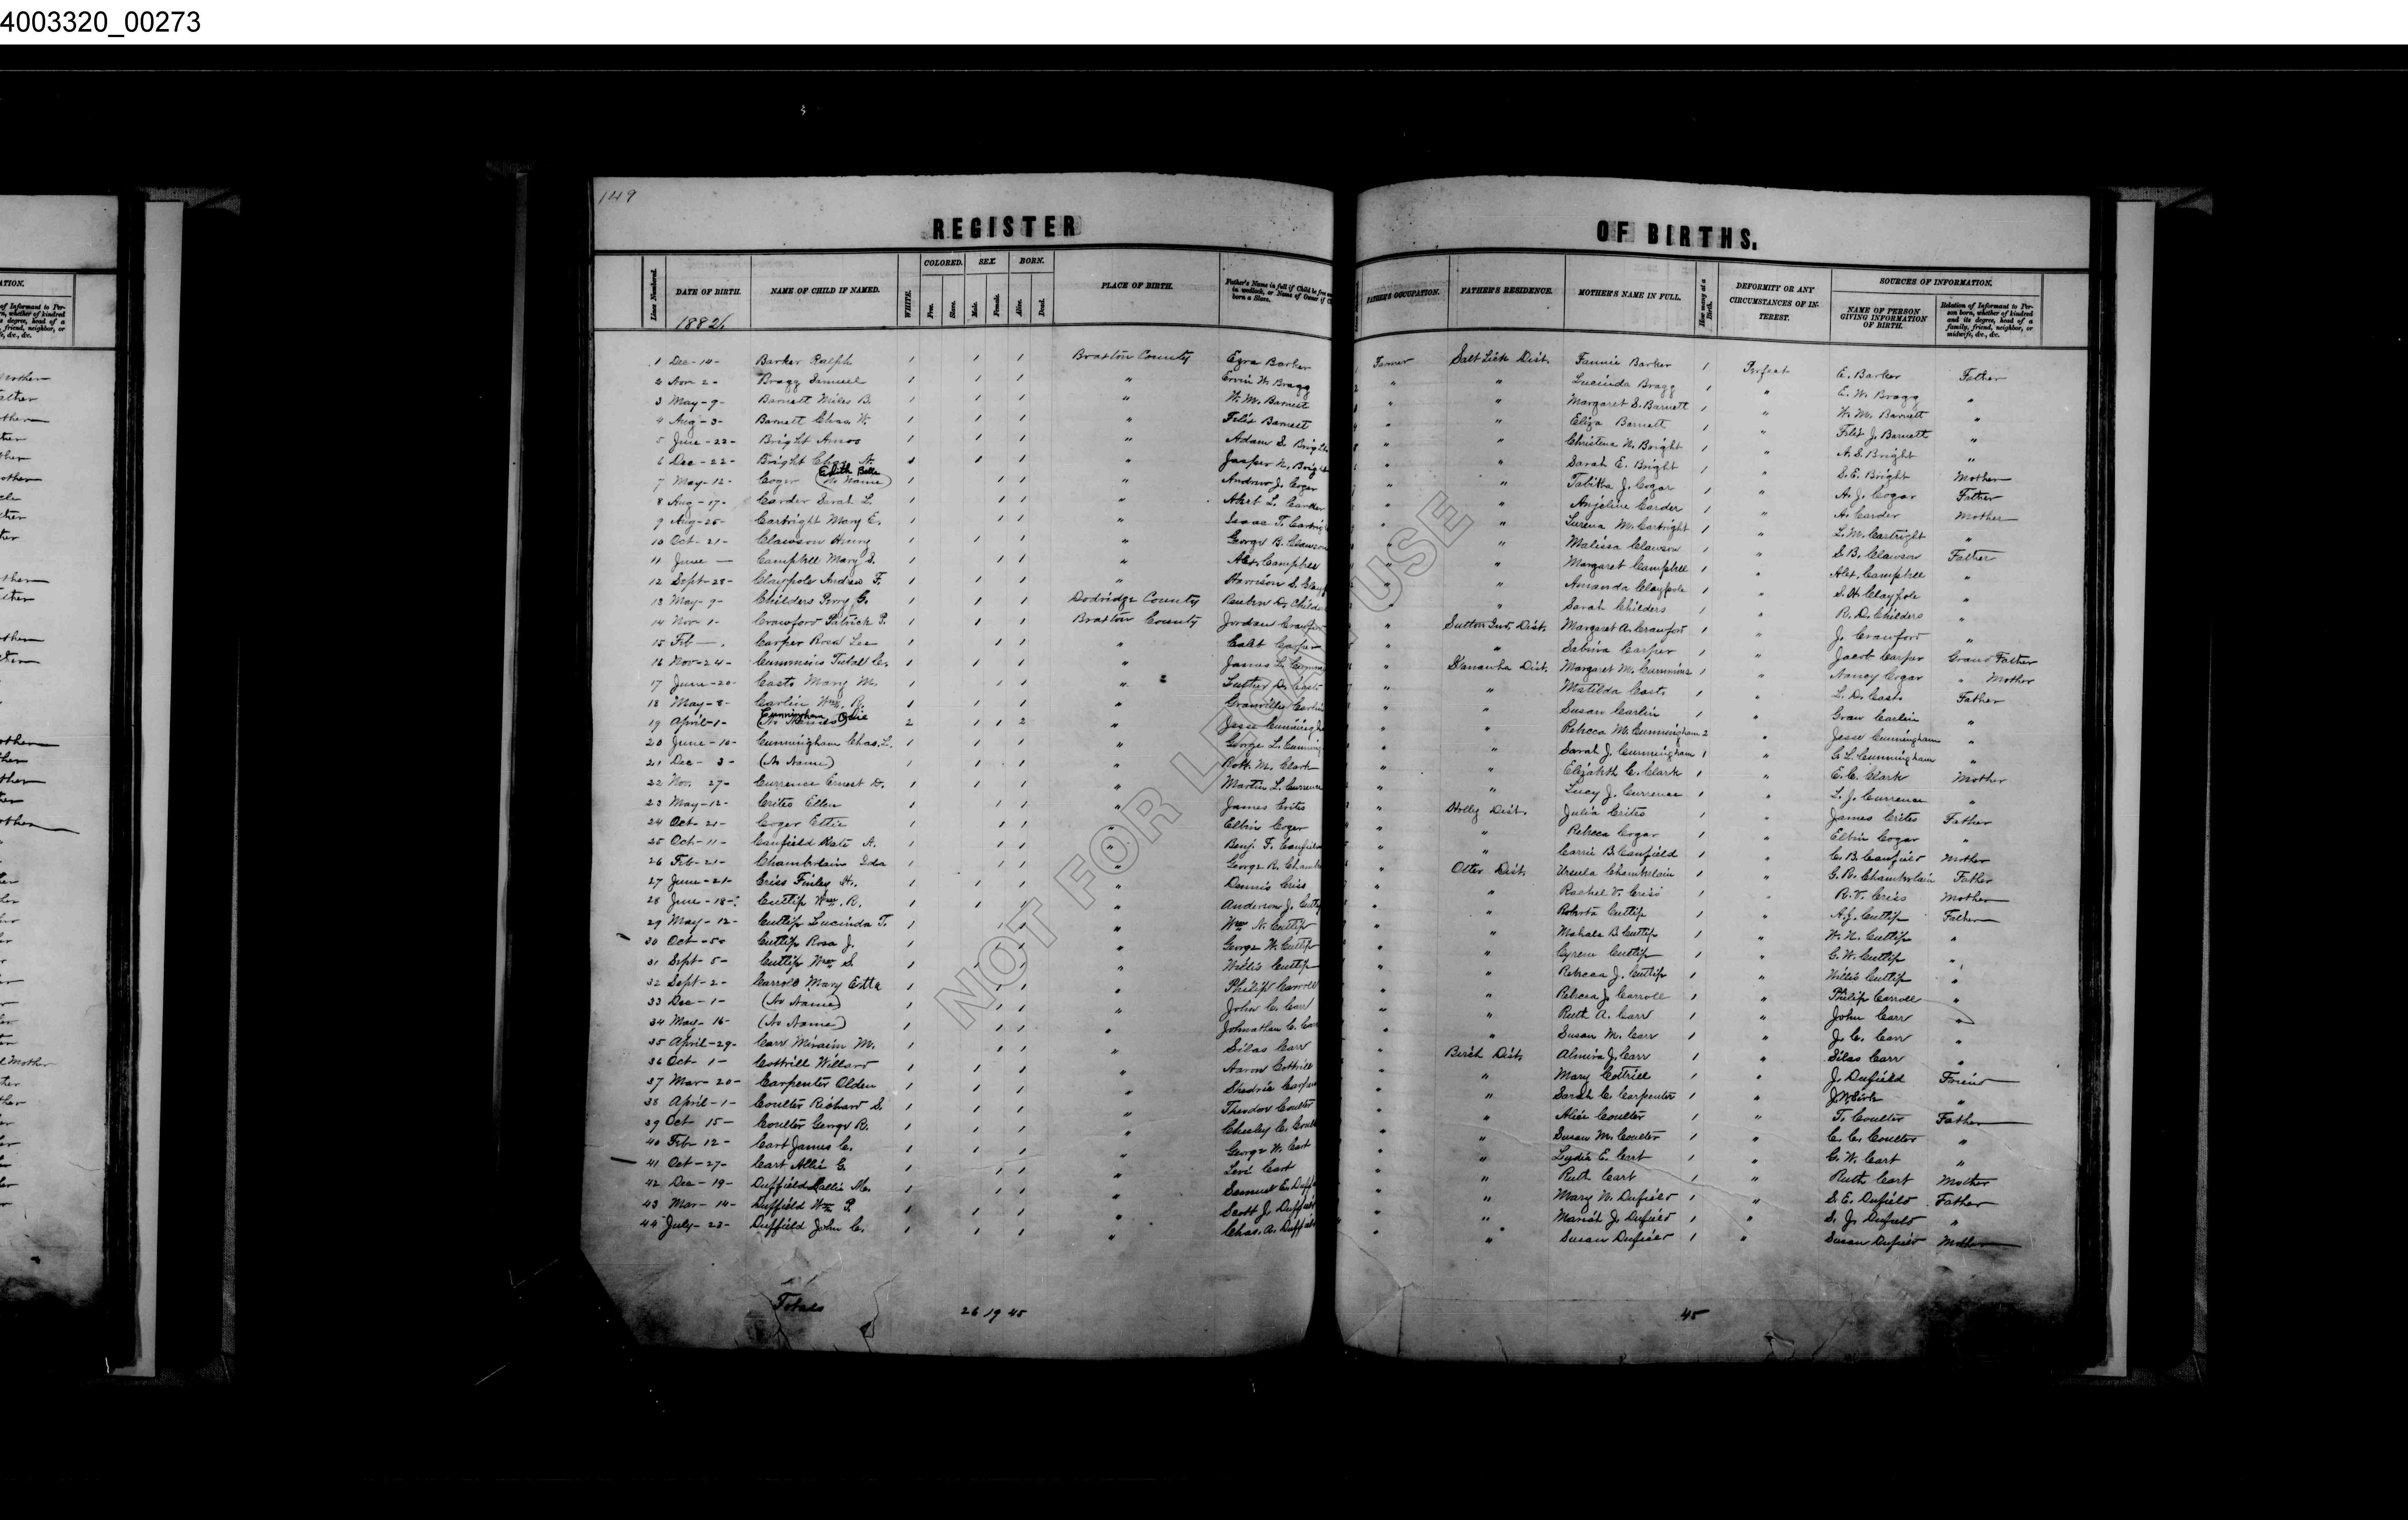 4003320_00273
149
REGISTER OF BIRTHS.
Lines Numbered. DATE OF BIRTH. NAME OF CHILD IF NAMED. WHITE. COLORED. Free. Slave. SEX. Male. Female. BORN. Alive. Dead. PLACE OF BIRTH. Father's Name in full if Child be free in wedlock, or Name of Owner if born a Slave. FATHER'S OCCUPATION. FATHER'S RESIDENCE. MOTHER'S NAME IN FULL. How many at a Birth. DEFORMITY OR ANY CIRCUMSTANCES OF INTEREST. SOURCES OF INFORMATION. NAME OF PERSON GIVING INFORMATION OF BIRTH. Relation of Informant to Person born, whether of kindred and its degree, head of a family, friend, neighbor, or midwife, &c., &c.
1882
1 Dec-14- Barker Ralph 1 1 1 Braxton County Ezra Barker Farmer Salt Lick Dist. Fannie Barker 1 Perfect E. Barker Father
2 Nov 2- Bragg Samuel 1 1 1 " Ervin W. Bragg " " Lucinda Bragg 1 " E. W. Bragg "
3 May-9- Barnett Miles B. 1 1 1 " W. M. Barnett " " Margaret S. Barnett 1 " W. M. Barnett "
4 Aug-3- Barnett Chas W. 1 1 1 " Felix Barnett " " Eliza Barnett 1 " Felix J. Barnett "
5 June-22- Bright Amos 1 1 1 " Adam S. " " Christena N. Bright 1 " A. S. Bright "
6 Dec-22- Bright Chas N. 1 1 1 " Jasper N. " " Sarah E. Bright 1 " S. E. Bright Mother
7 May-12- Coger (No Name) Edith Belle 1 1 1 " Andrew J. Coger " " Tabitha J. Cogar 1 " A. J. Cogar Father
8 Aug-17- Carder Sarah L. 1 1 1 " L. Carder " " Anjeline Carder 1 " A. Carder Mother
9 Aug-25- Cartright Mary E. 1 1 1 " Isaac T. " " Lurena M. Cartright 1 " L. M. Cartright "
10 Oct-21- Clawson Henry 1 1 1 " George B. Clawson " " Malissa Clawson 1 " S. B. Clawson Father
11 June — Campbell Mary S. 1 1 1 " Alex. Campbell " " Margaret Campbell 1 " Alex. Campbell "
12 Sept-28- Claypole Andrew F. 1 1 1 " Harrison S. " " Amanda Claypole 1 " S. H. Claypole "
13 May-9- Childers Perry G. 1 1 1 Dodridge County Reuben D. " " Sarah Childers 1 " R. D. Childers "
14 Nov 1- Crawford Patrick P. 1 1 1 Braxton County Jordan " Sutton Ind. Dist. Margaret A. Crawford 1 " J. Crawford "
15 Feb — Carper Rosa Lee 1 1 1 " Caleb Carper " " Sabina Carper 1 " Jacob Carper Grand Father
16 Nov-24- Cummins C. 1 1 1 " James L. " Kanawha Dist. Margaret M. Cummins 1 " Nancy Cogar " Mother
17 June-20- Casto Mary M. 1 1 1 " Luther D. Casto " " Matilda Casto 1 " L. D. Casto Father
18 May-8- Carlin Wm. R. 1 1 1 " Granville Carlin " " Susan Carlin 1 " Gran Carlin "
19 April-1- (No Names) Cunningham 2 1 1 2 " Jesse " " Rebecca M. Cunningham 2 " Jesse Cunningham "
20 June-10- Cunningham Chas. L. 1 1 1 " George L. " " Sarah J. Cunningham 1 " G. L. Cunningham "
21 Dec-3- (No Name) 1 1 1 " Robt. M. Clark " " Elizabeth C. Clark 1 " E. C. Clark Mother
22 Nov. 27- Currence Ernest D. 1 1 1 " Martin L. Currence " " Lucy J. Currence 1 " L. J. Currence "
23 May-12- Crites Ellen 1 1 1 " James Crites " Holly Dist. Julia Crites 1 " James Crites Father
24 Oct-21- Coger Ettie 1 1 1 " Elbin Coger " " Rebecca Cogar 1 " Elbin Cogar "
25 Oct-11- Canfield Kate A. 1 1 1 " Benj. F. Canfield " " Carrie B. Canfield 1 " C. B. Canfield Mother
26 Feb-21- Chamberlain Ida 1 1 1 " George R. " Otter Dist. Ursula Chamberlain 1 " G. R. Chamberlain Father
27 June-21- Criss Finley H. 1 1 1 " Dennis Criss " " Rachel V. Criss 1 " R. V. Criss Mother
28 June-18- Cutlip Wm. R. 1 1 1 " Anderson J. " " Roberta Cutlip 1 " A. J. Cutlip Father
29 May-12- Cutlip Lucinda T. 1 1 1 " Wm N. Cutlip " " Mahala B. Cutlip 1 " W. N. Cutlip "
30 Oct-5- Cutlip Rosa J. 1 1 1 " George W. Cutlip " " Cyrene Cutlip 1 " G. W. Cutlip "
31 Sept-5- Cutlip Wm S. 1 1 1 " Willis Cutlip " " Rebecca J. Cutlip 1 " Willis Cutlip "
32 Sept-2- Carroll Mary Etta 1 1 1 " Philip Carroll " " Rebecca J. Carroll 1 " Philip Carroll "
33 Dec-1- (No Name) 1 1 1 " John C. Carr " " Ruth A. Carr 1 " John Carr "
34 May-16- (No Name) 1 1 1 " Johnathan C. Carr " " Susan M. Carr 1 " J. C. Carr "
35 April-29- Carr M. 1 1 1 " Silas Carr " Birch Dist. Almira J. Carr 1 " Silas Carr "
36 Oct 1- Cottrill Willard 1 1 1 " Aaron Cottrill " " Mary Cottrill 1 " J. Dufield Friend
37 Mar-20- Carpenter Olden 1 1 1 " " " Sarah C. Carpenter 1 " "
38 April-1- Coulter Richard S. 1 1 1 " Theodor Coulter " " Alice Coulter 1 " T. Coulter Father
39 Oct 15- Coulter George R. 1 1 1 " C. " " Susan M. Coulter 1 " C. C. Coulter "
40 Feb 12- Cart James C. 1 1 1 " George W. Cart " " Lydia E. Cart 1 " G. W. Cart "
41 Oct-27- Cart Allie G. 1 1 1 " Levi Cart " " Ruth Cart 1 " Ruth Cart Mother
42 Dec-19- Duffield M. 1 1 1 " Samuel E. " " Mary N. Dufield 1 " S. E. Dufield Father
43 Mar-14- Duffield Wm P. 1 1 1 " Scott J. Duffield " " Mariah J. Dufield 1 " S. J. Dufield "
44 July-23- Duffield John C. 1 1 1 " Chas. A. Duffield " " Susan Dufield 1 " Susan Dufield Mother
Totals 26 19 45 45
NOT FOR LEGAL USE